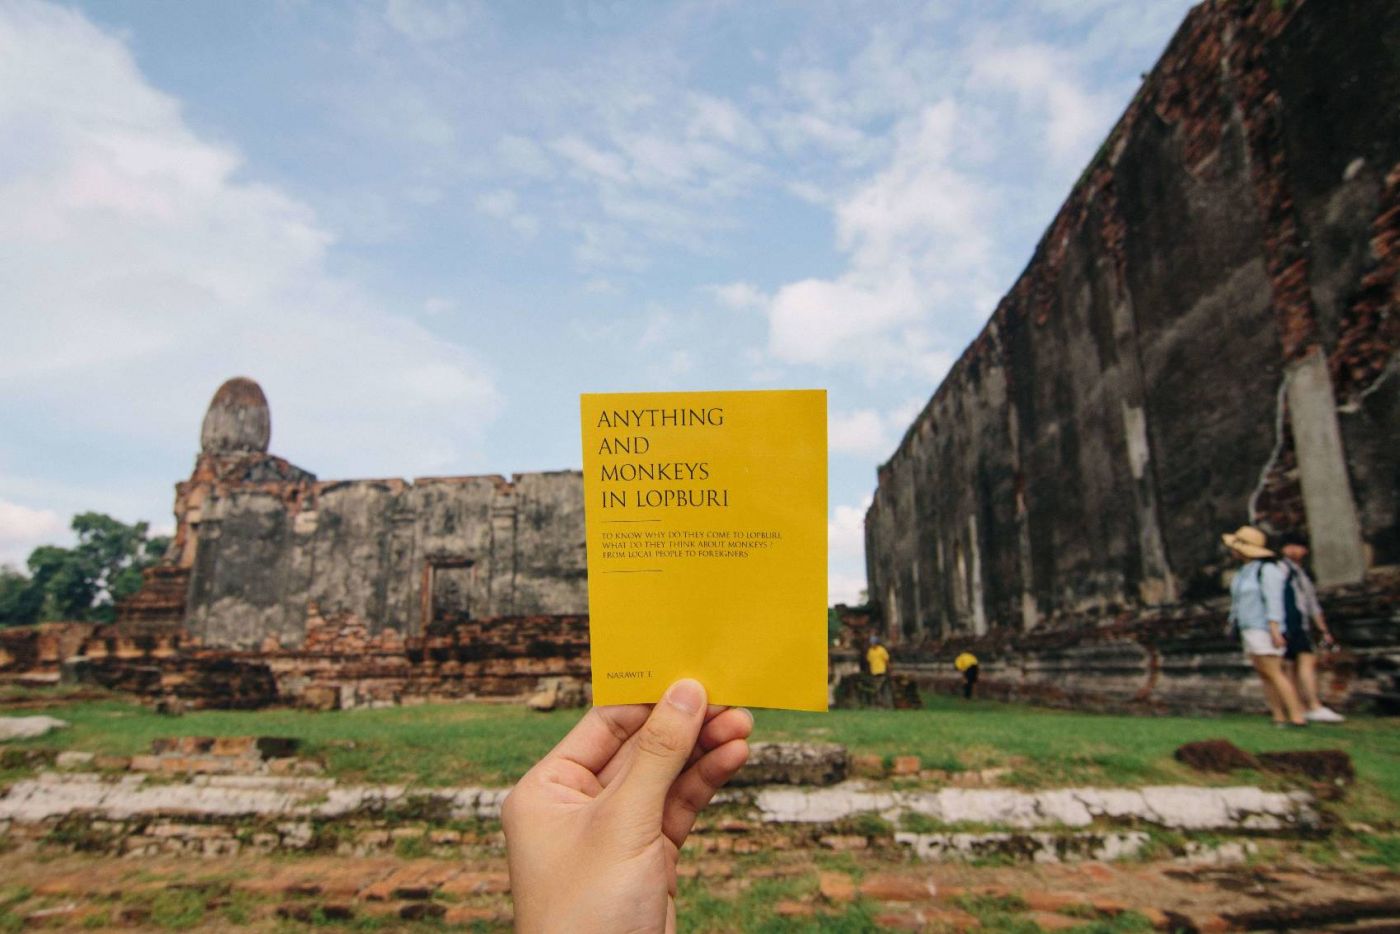 ANYTHING
AND
MONKEYS
IN LOPBURI
TO KNOW WHY DO THEY COME TO LOPBURI,
WHAT DO THEY THINK ABOUT MONKEYS ?
FROM LOCAL PEOPLE TO FOREIGNERS
NARAWIT T.